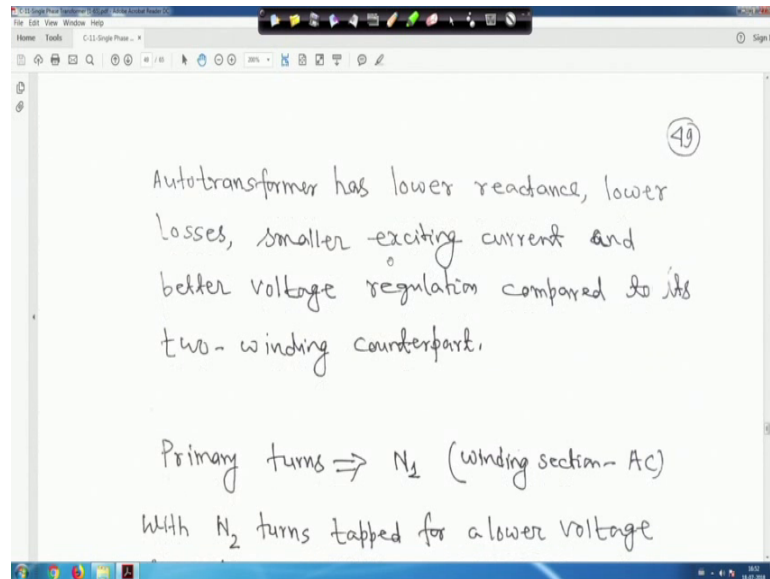 C-11-Single Phase Transformer (1-65).pdf - Adobe Acrobat Reader DC
File Edit View Window Help
Home Tools C-11-Single Phase ... × Sign
49
Autotransformer has lower reactance, lower
losses, smaller exciting current and
better voltage regulation compared to its
two-winding counterpart.
Primary turns ⇒ N₁ (winding section- AC)
With N₂ turns tapped for a lower voltage
16:52